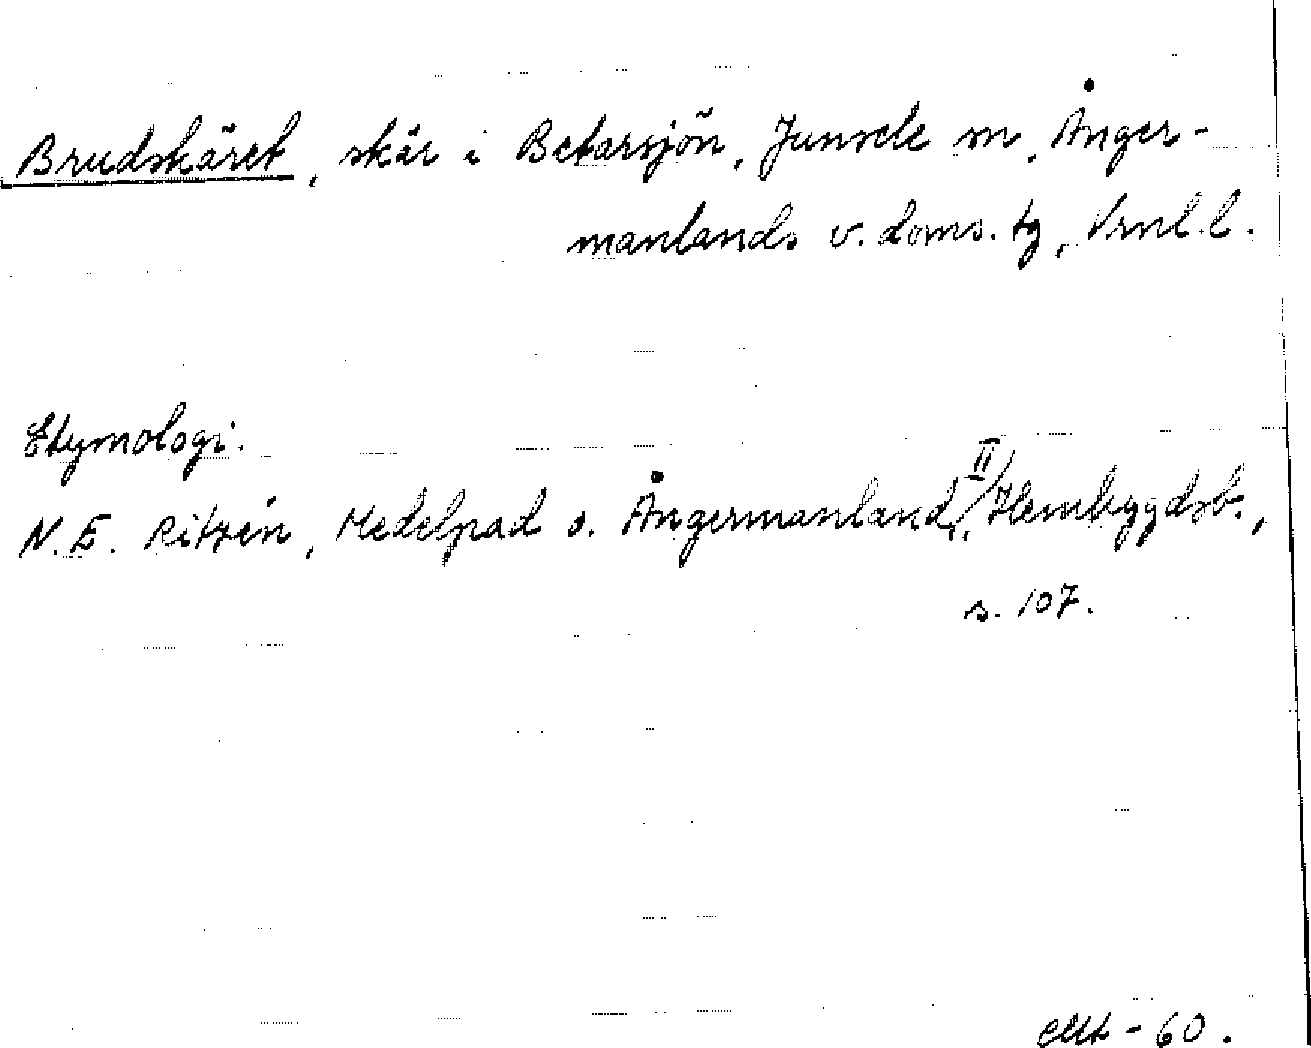 Brudskäret, skär i Betarsjön, Junsele sn, Ånger-
manlands v. doms. tg, Vrnl. l.
Etymologi.
N. E. Ritzén, Medelpad o. Ångermanland, II, Hembygdsb.,
s. 107.
- 60.